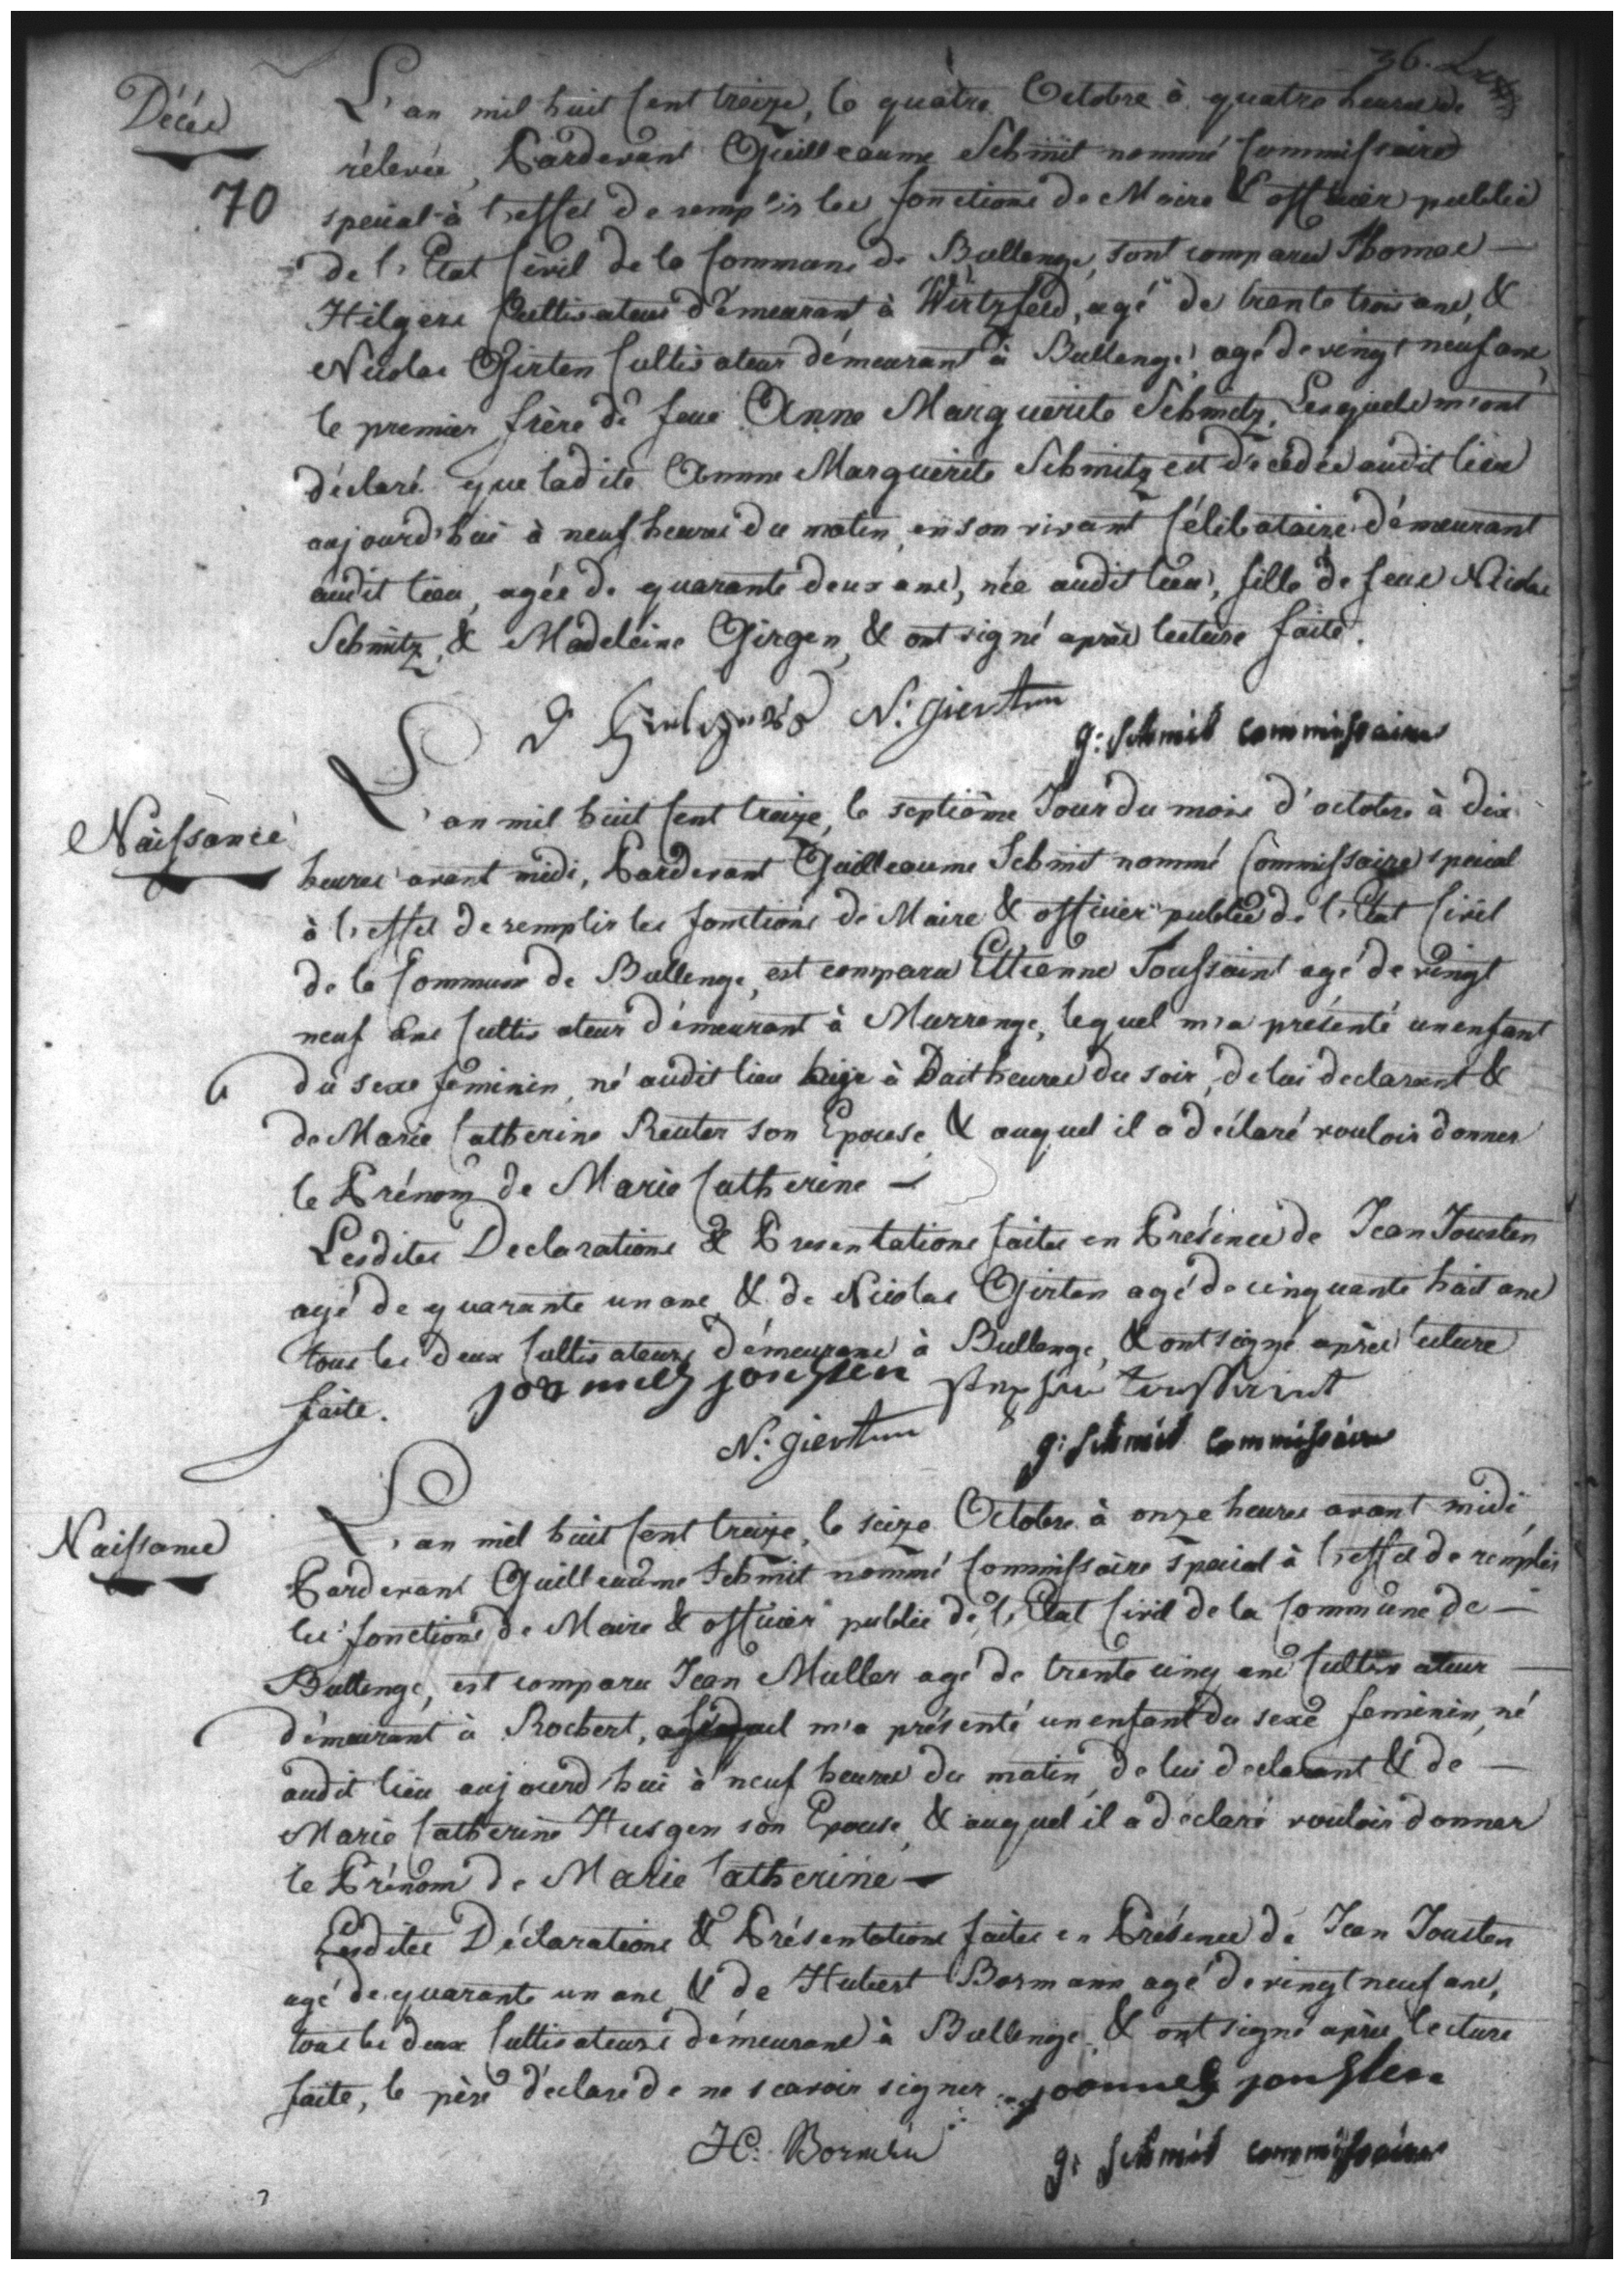 36.
Décés
70
L'an mil huit Cent treize, le quatre Octobre à quatre heures de
rélevée, Pardevant Guilleaume Schmit nommé Commissaire
special à l'effet de remplir les fonctions de Maire & officier public
de l'Etat Civil de la Commune de Bullenge, sont comparus Thomas —
Hilgers Cultivateur démeurant à Wirtzfeld, agé de trente trois ans, &
Nicolas Girten Cultivateur démeurant à Bullenge, agé de vingt neuf ans,
le premier frère de feue Anne Marguerite Schmitz, Lesquels m'ont
déclaré que ladite Anne Marguerite Schmitz est décédée audit lieu
aujourd'hui à neuf heures du matin, en son vivant Célibataire démeurant
audit lieu, agée de quarante deux ans, née audit lieu, fille de feus Nicolas
Schmitz, & Madeleine Girgen, & ont signé après lecture faite.
N. gierten
g: schmit commissaire
Naissance
L'an mil huit Cent treize, le septième Jour du mois d'octobre à dix
heures avant midi, Pardevant Guilleaume Schmit nommé Commissaire special
à l'effet de remplir les fonctions de Maire & officier public de l'Etat Civil
de la Commune de Bullenge, est comparu Ettienne Toussaint agé de vingt
neuf ans Cultivateur démeurant à Murrenge, lequel m'a présenté un enfant
du sexe feminin, né audit lieu à huit heures du soir, de lui declarant &
de Marie Catherine Reuter son Epouse, & auquel il a déclaré vouloir donner
le Prénom de Marie Catherine —
Lesdites Declarations & Presentations faites en Présence de Jean Jousten
agé de quarante un ans, & de Nicolas Girten agé de cinquante huit ans
tous les deux Cultivateurs démeurans à Bullenge, & ont signé après lecture
faite.
joannes jousten
toussaint
N. gierten
g: schmit commissaire
Naissance
L'an mil huit Cent treize, le seize Octobre à onze heures avant midi
Pardevant Guilleaume Schmit nommé Commissaire special à l'effet de remplir
les fonctions de Maire & officier public de l'Etat Civil de la Commune de —
Bullenge, est comparu Jean Muller agé de trente cinq ans Cultivateur —
démeurant à Rochert, m'a présenté un enfant du sexe feminin, né
audit lieu aujourd'hui à neuf heures du matin, de lui declarant & de —
Marie Catherine Husgen son Epouse, & auquel il a déclaré vouloir donner
le Prénom de Marie Catherine —
Lesdites Déclarations & Présentations faites en Présence de Jean Jousten
agé de quarante un ans, & de Hubert Bormann agé de vingt neuf ans,
tous les deux Cultivateurs démeurans à Bullenge, & ont signé après lecture
faite, le père déclare de ne scavoir signer.
joannes jousten
H: Borman
g: schmit commissaire